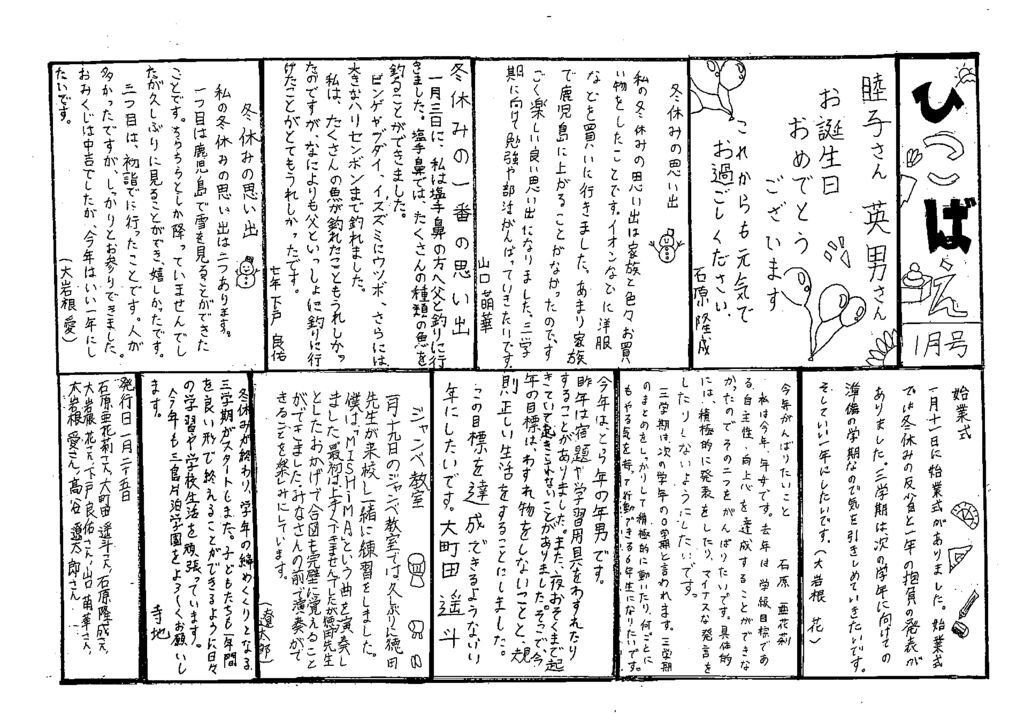 ひこばえ
1月号
睦子さん 英男さん
お誕生日
おめでとう
ございます
これからも元気で
お過ごしください。
石原 隆成
冬休みの思い出
私の冬休みの思い出は家族と色々お買
い物をしたことです。イオンなどに洋服
などを買いに行きました。あまり家族
で鹿児島に上がることがなかったので、す
ごく楽しい良い思い出になりました。三学
期に向けて勉強や部活がんばっていきたいです。
山口 苗華
冬休みの一番の思い出
一月三日に、私は塩手鼻の方へ父と釣りに行
きました。塩手鼻では、たくさんの種類の魚を
釣ることができました。
ピンゲやブダイ、イスズミにウツボ、さらには
大きなハリセンボンまで釣れました。
私は、たくさんの魚が釣れたこともうれしかっ
たのですが、なによりも父といっしょに釣りに行
けたことがとてもうれしかったです。
七年 下戸 良佑
冬休みの思い出
私の冬休みの思い出は二つあります。
一つ目は鹿児島で雪を見ることができた
ことです。ちらちらとしか降っていませんでし
たが久しぶりに見ることができ、嬉しかったです。
二つ目は、初詣でに行ったことです。人が
多かったですが、しっかりとお参りできました。
おみくじは中吉でしたが、今年はいい一年にし
たいです。
(大岩根 愛)
始業式
一月十一日に始業式がありました。始業式
では冬休みの反省と一年の抱負の発表が
ありました。三学期は次の学年に向けての
準備の学期なので気を引きしめていきたいです。
そしていい一年にしたいです。
(大岩根 花)
今年がんばりたいこと
石原 亜花莉
私は今年、年女です。去年は学級目標であ
る、自主性、向上心を達成することができな
かったのでその二つをがんばりたいです。具体的
には、積極的に発表をしたり、マイナスな発言を
したりしないようにしたいです。
三学期は、次の学年の0学期と言われます。三学期
のまとめをしっかりして、積極的に動いたり、何ごとに
もやる気を持って行動できる6年生になりたいです。
今年は、とら年の年男です。
昨年は宿題や学習用具をわすれたり
することがありました。また、夜おそくまで起
きていて起きられないことがありました。そこで、今
年の目標は、わすれ物をしないことと、規
則正しい生活をすることにしました。
この目標を達成できるような
年にしたいです。 大町田 遥斗
ジャンベ教室
一月十九日のジャンベ教室では久ぶりに徳田
先生が来校し一緒に練習をしました。
僕は、「MISHIMA」という曲を演奏し
ました。最初は上手くできませんでしたが徳田先生
としたおかげで合図も完璧に覚えること
ができました。みなさんの前で演奏がで
きることを楽しみにしています。
(遼太郎)
冬休みが終わり、学年の締めくくりとなる
三学期がスタートしました。子どもたちも一年間
を良い形で終えることができるように日々
の学習や学校生活を頑張っています。
今年も三島片泊学園をよろしくお願いし
ます。
寺地
発行日 一月二十五日
石原亜花莉さん 大町田 遥斗さん 石原 隆成さん
大岩根 花さん 下戸 良佑さん 山口 苗華さん
大岩根 愛さん 高谷 遼太郎さん